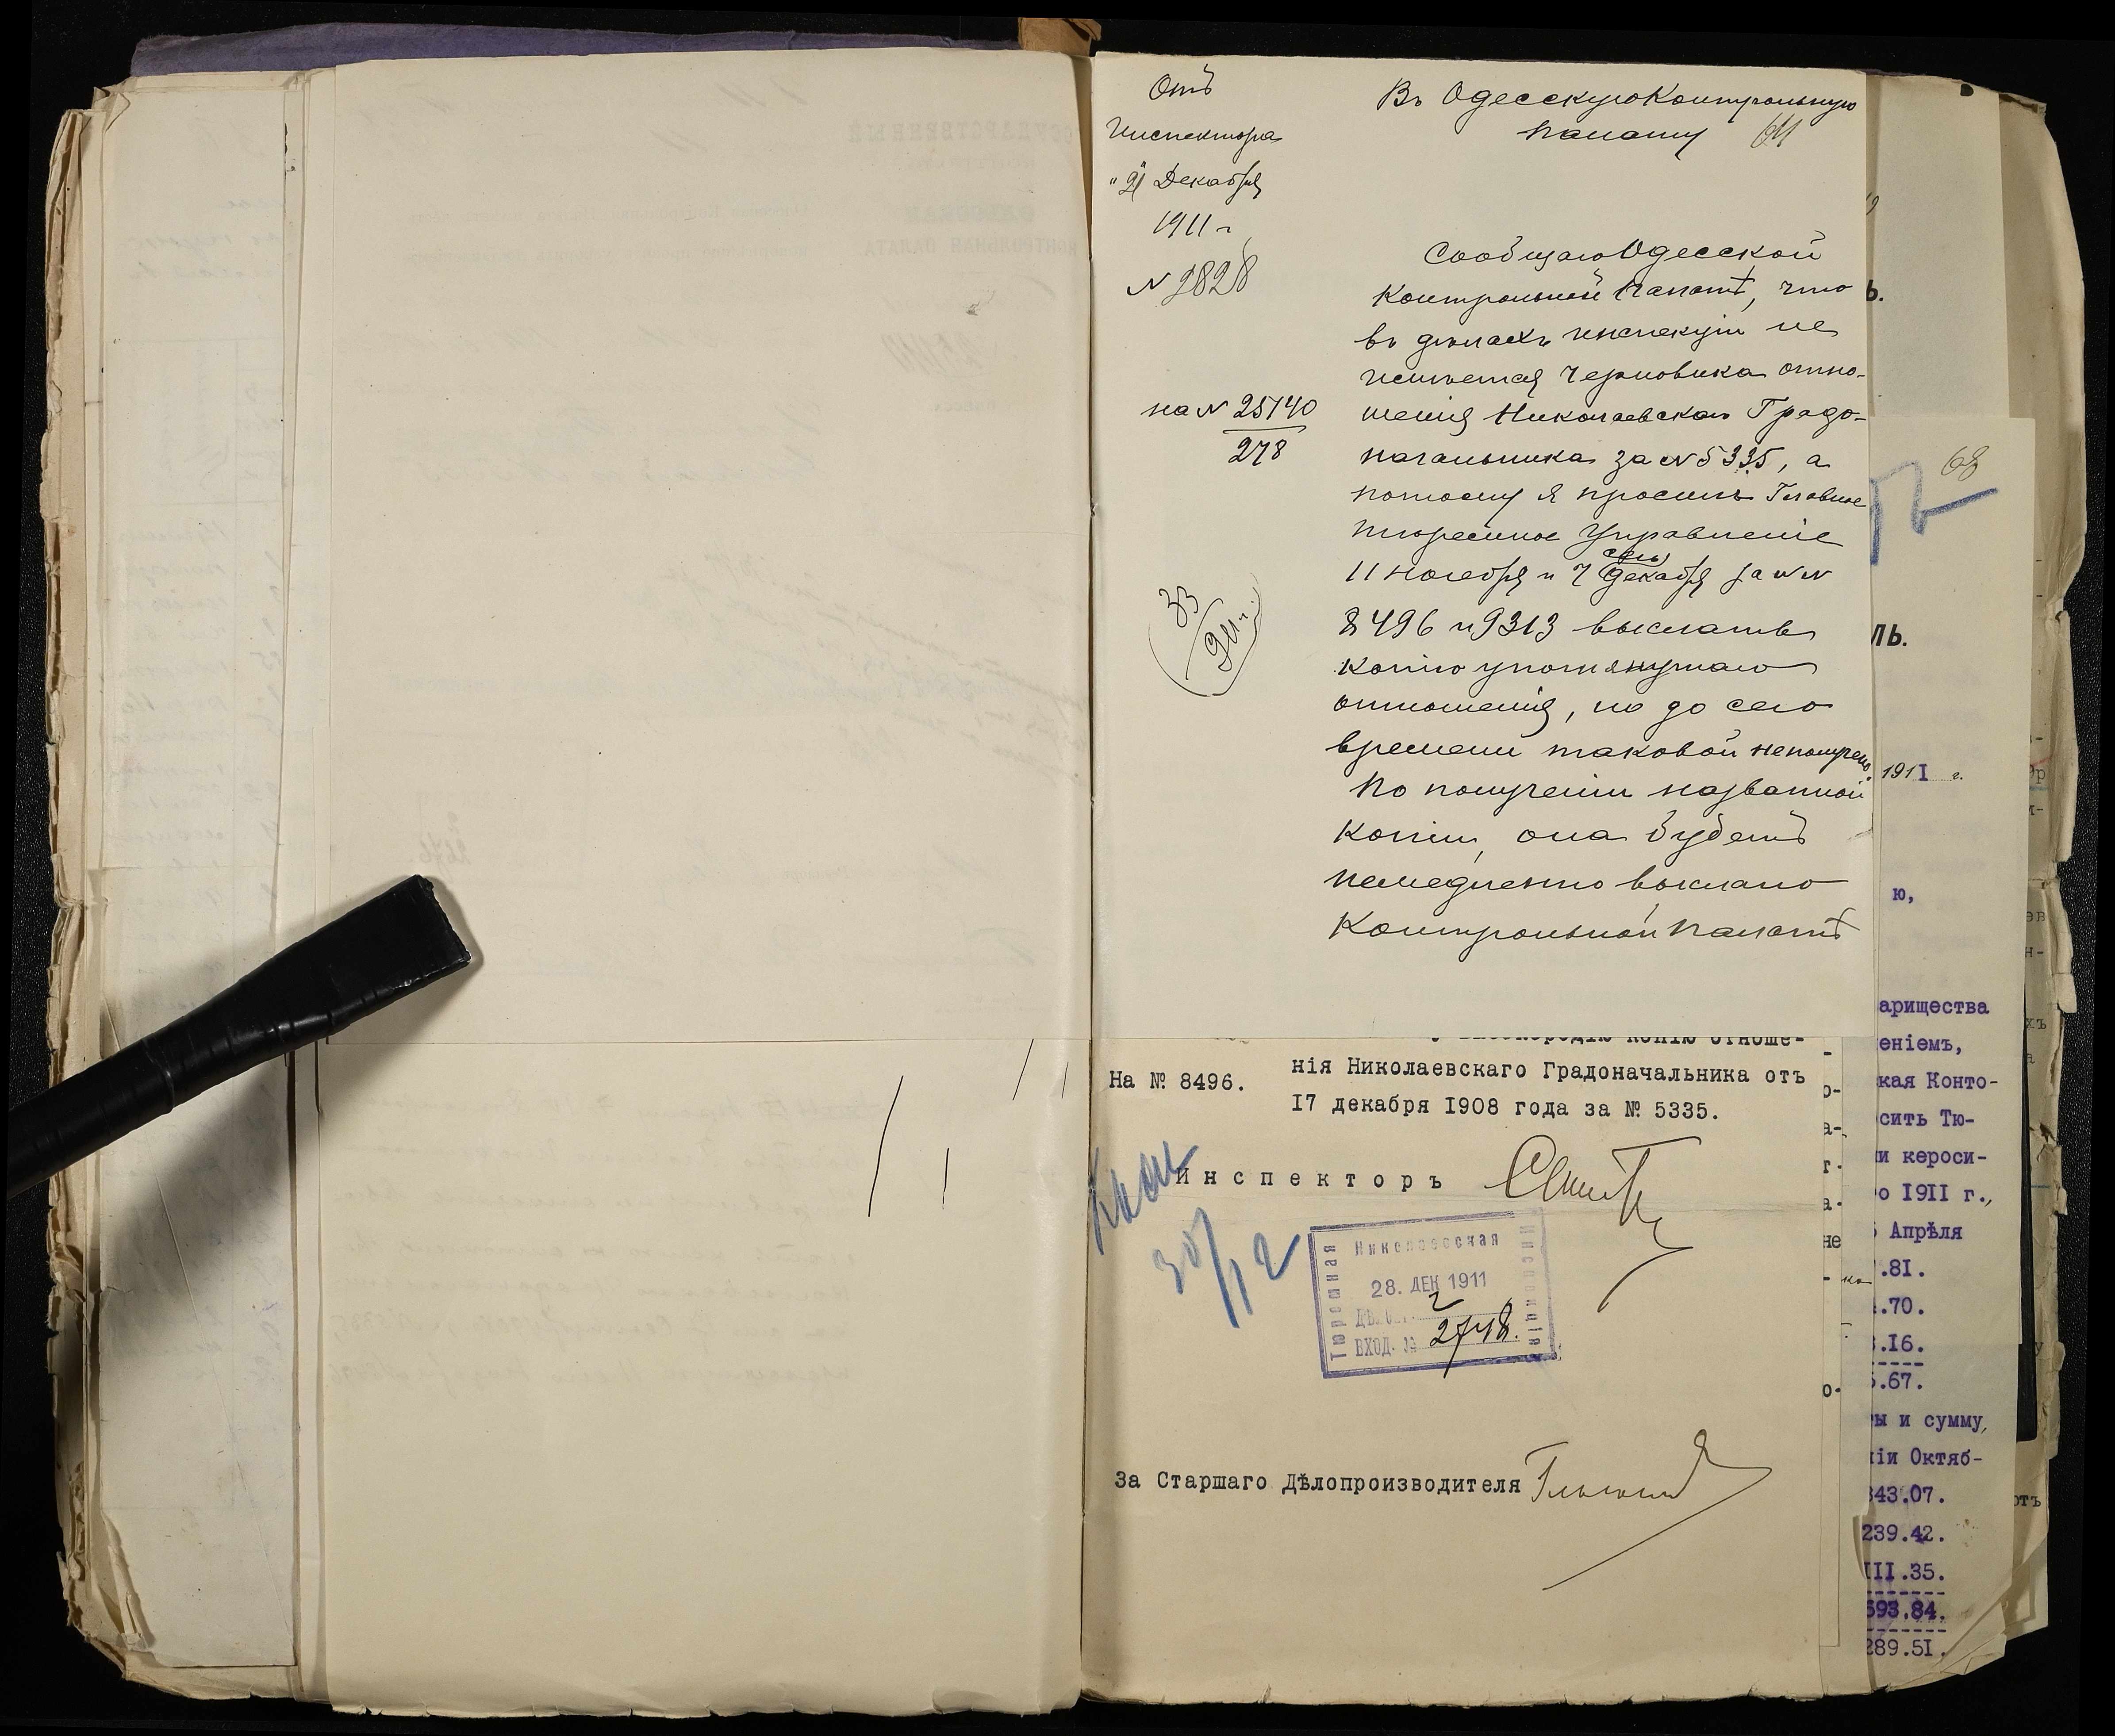 Отъ
Инспектора
"21 Декабря
1911 г
№ 9828
на № 25140
278
33
Въ Одесскую Контрольную
палату 64
Сообщаю Одесской
Контрольной Палатѣ, что
въ дѣлахъ инспекціи не
имѣется черновика отно-
шенія Николаевскаго Градо-
начальника за № 5335, а
потому я просилъ Главное
тюремное Управленіе
11 ноября и 7 сего декабря за №№
8496 и 9313 выслать
копію упомянутаго
отношенія, но до сего
времени таковой не получено.
По полученіи названной
копіи, она будетъ
немедленно выслано
Контрольной Палатѣ
копію отноше-
На № 8496.
нія Николаевскаго Градоначальника отъ
17 декабря 1908 года за № 5335.
Инспекторъ
30/12
Николаевская
Тюремная
Инспекція
28. ДЕК 1911
ДѢЛО 2
ВХОД. № 2748.
За Старшаго Дѣлопроизводителя
68
ль.
1911 г.
ю,
арищества
еніемъ,
кая Конто-
сить Тю-
и кероси-
о 1911 г.,
Апрѣля
.81.
.70.
.16.
.67.
ы и сумму,
іи Октяб-
343.07.
239.42.
III.35.
593.84.
289.51.